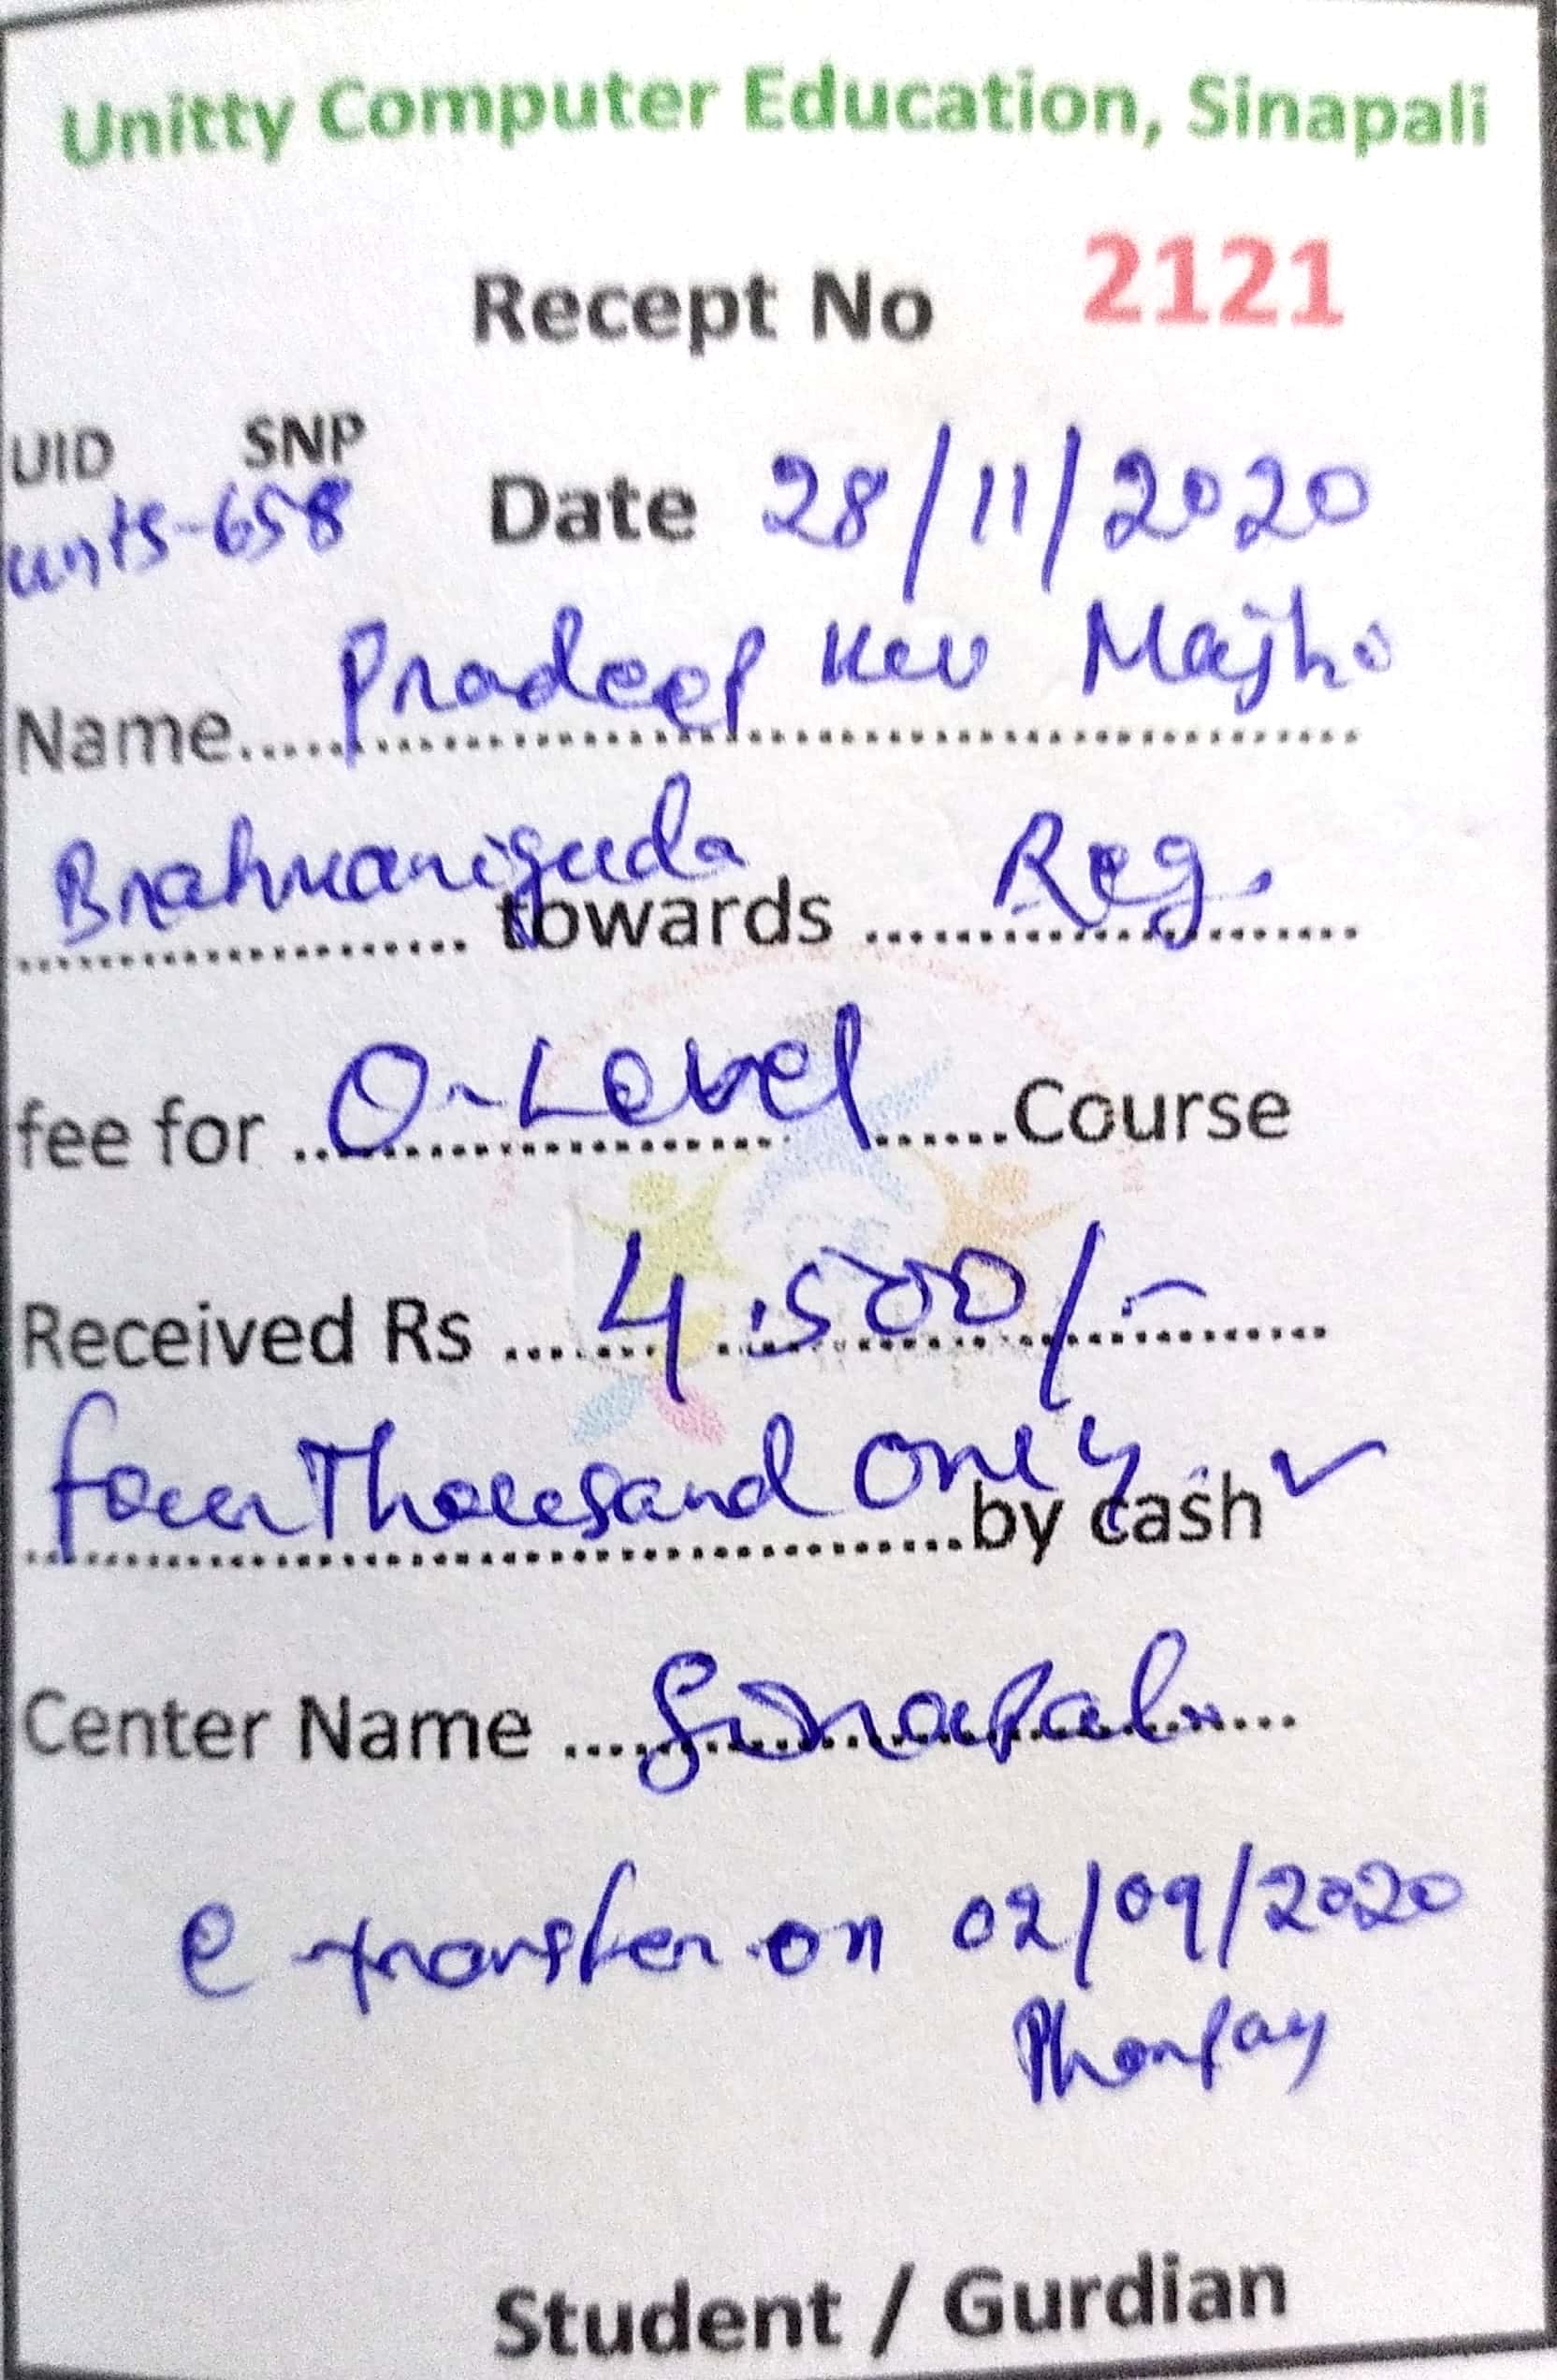 Unitty Computer Education, Sinapali
Recept No 2121
UID SNP
unts-658 Date 28/11/2020
Name..... Pradeep Ku Majhi
Brahmaniguda towards ..... Reg.
fee for ..... O-Level ......Course
Received Rs ..... 4.500/-
four Thousand only by cash ✓
Center Name ..... Sinapali
e transfer on 02/09/2020
Phonpay
Student / Gurdian